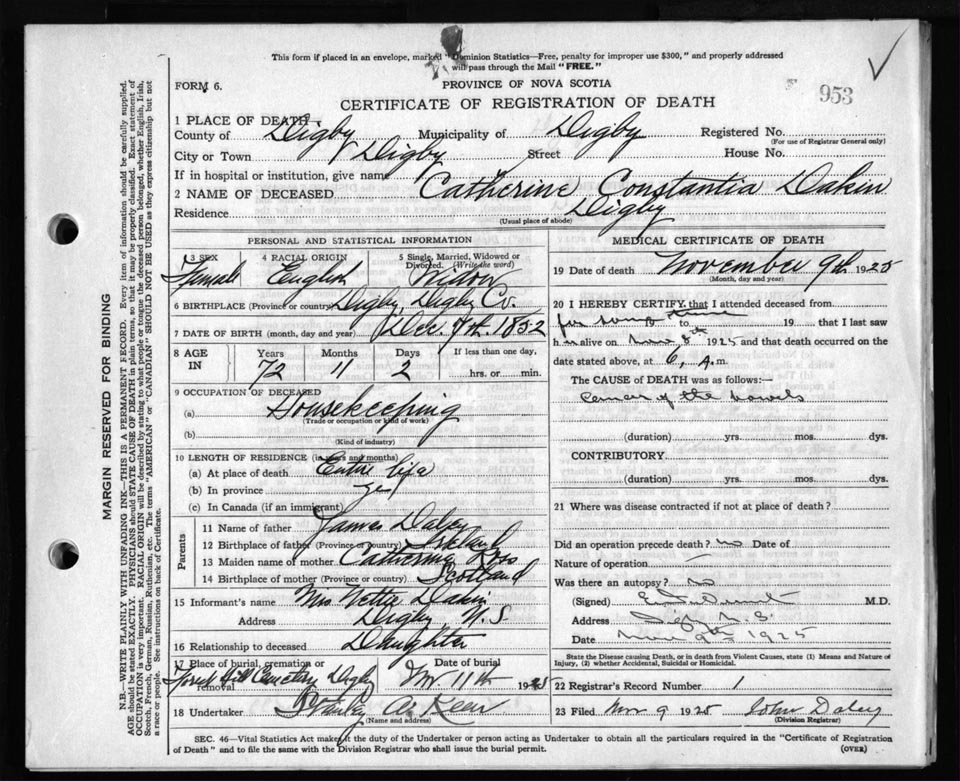 This form if placed in an envelope, marked "Dominion Statistics—Free, penalty for improper use $300," and properly addressed
will pass through the Mail "FREE."
FORM 6.
PROVINCE OF NOVA SCOTIA
953
CERTIFICATE OF REGISTRATION OF DEATH
1 PLACE OF DEATH—
County of Digby Municipality of Digby Registered No.
(For use of Registrar General only)
City or Town Digby Street House No.
If in hospital or institution, give name
2 NAME OF DECEASED Catherine Constantia Dakin
Residence Digby
(Usual place of abode)
PERSONAL AND STATISTICAL INFORMATION
3 SEX 4 RACIAL ORIGIN 5 Single, Married, Widowed or
Divorced. (Write the word)
Female English Widow
6 BIRTHPLACE (Province or country) Digby, Digby Co.
7 DATE OF BIRTH (month, day and year) Dec. 7th. 1852
8 AGE IN Years Months Days If less than one day,
72 11 2 hrs. or min.
9 OCCUPATION OF DECEASED
(a) Housekeeping
(Trade or occupation or kind of work)
(b)
(Kind of industry)
10 LENGTH OF RESIDENCE (in years and months)
(a) At place of death Entire life
(b) In province yes
(c) In Canada (if an immigrant)
Parents
11 Name of father James Daley
12 Birthplace of father (Province or country) Ireland
13 Maiden name of mother Catherine
14 Birthplace of mother (Province or country) Scotland
15 Informant's name Mrs Nettie Dakin
Address Digby N.S.
16 Relationship to deceased Daughter
17 Place of burial, cremation or removal Date of burial
Forest Hill Cemetery Digby Nov 11th 1925
18 Undertaker Stanley
(Name and address)
MEDICAL CERTIFICATE OF DEATH
19 Date of death November 9th 1925
(Month, day and year)
20 I HEREBY CERTIFY that I attended deceased from
for some time 19 to 19 that I last saw
h alive on Nov 8th 1925 and that death occurred on
date stated above, at 6, A.m.
The CAUSE of DEATH was as follows:—
Cancer of the bowels
(duration) yrs. mos. dys.
CONTRIBUTORY
(duration) yrs. mos. dys.
21 Where was disease contracted if not at place of death?
Did an operation precede death? no Date of
Nature of operation —
Was there an autopsy? no
(Signed) M.D.
Address Digby N.S.
Date Nov 9th 1925
State the Disease causing Death, or in death from Violent Causes, state (1) Means and Nature of
Injury, (2) whether Accidental, Suicidal or Homicidal.
22 Registrar's Record Number 1
23 Filed Nov 9 1925 John Daley
(Division Registrar)
SEC. 46—Vital Statistics Act makes it the duty of the Undertaker or person acting as Undertaker to obtain all the particulars required in the "Certificate of Registration
of Death" and to file the same with the Division Registrar who shall issue the burial permit.
(OVER)
MARGIN RESERVED FOR BINDING
N.B.—WRITE PLAINLY WITH UNFADING INK—THIS IS A PERMANENT RECORD. Every item of information should be carefully supplied.
AGE should be stated EXACTLY. PHYSICIANS should STATE CAUSE OF DEATH in plain terms, so that it may be properly classified. Exact statement of
OCCUPATION is very important. RACIAL ORIGIN will be described by stating to what people or tongue the deceased person belonged, whether English, Irish,
Scotch, French, German, Russian, Ruthenian, etc. The terms "AMERICAN" or "CANADIAN" SHOULD NOT BE USED as they express citizenship but not
a race or people. See instructions on back of Certificate.